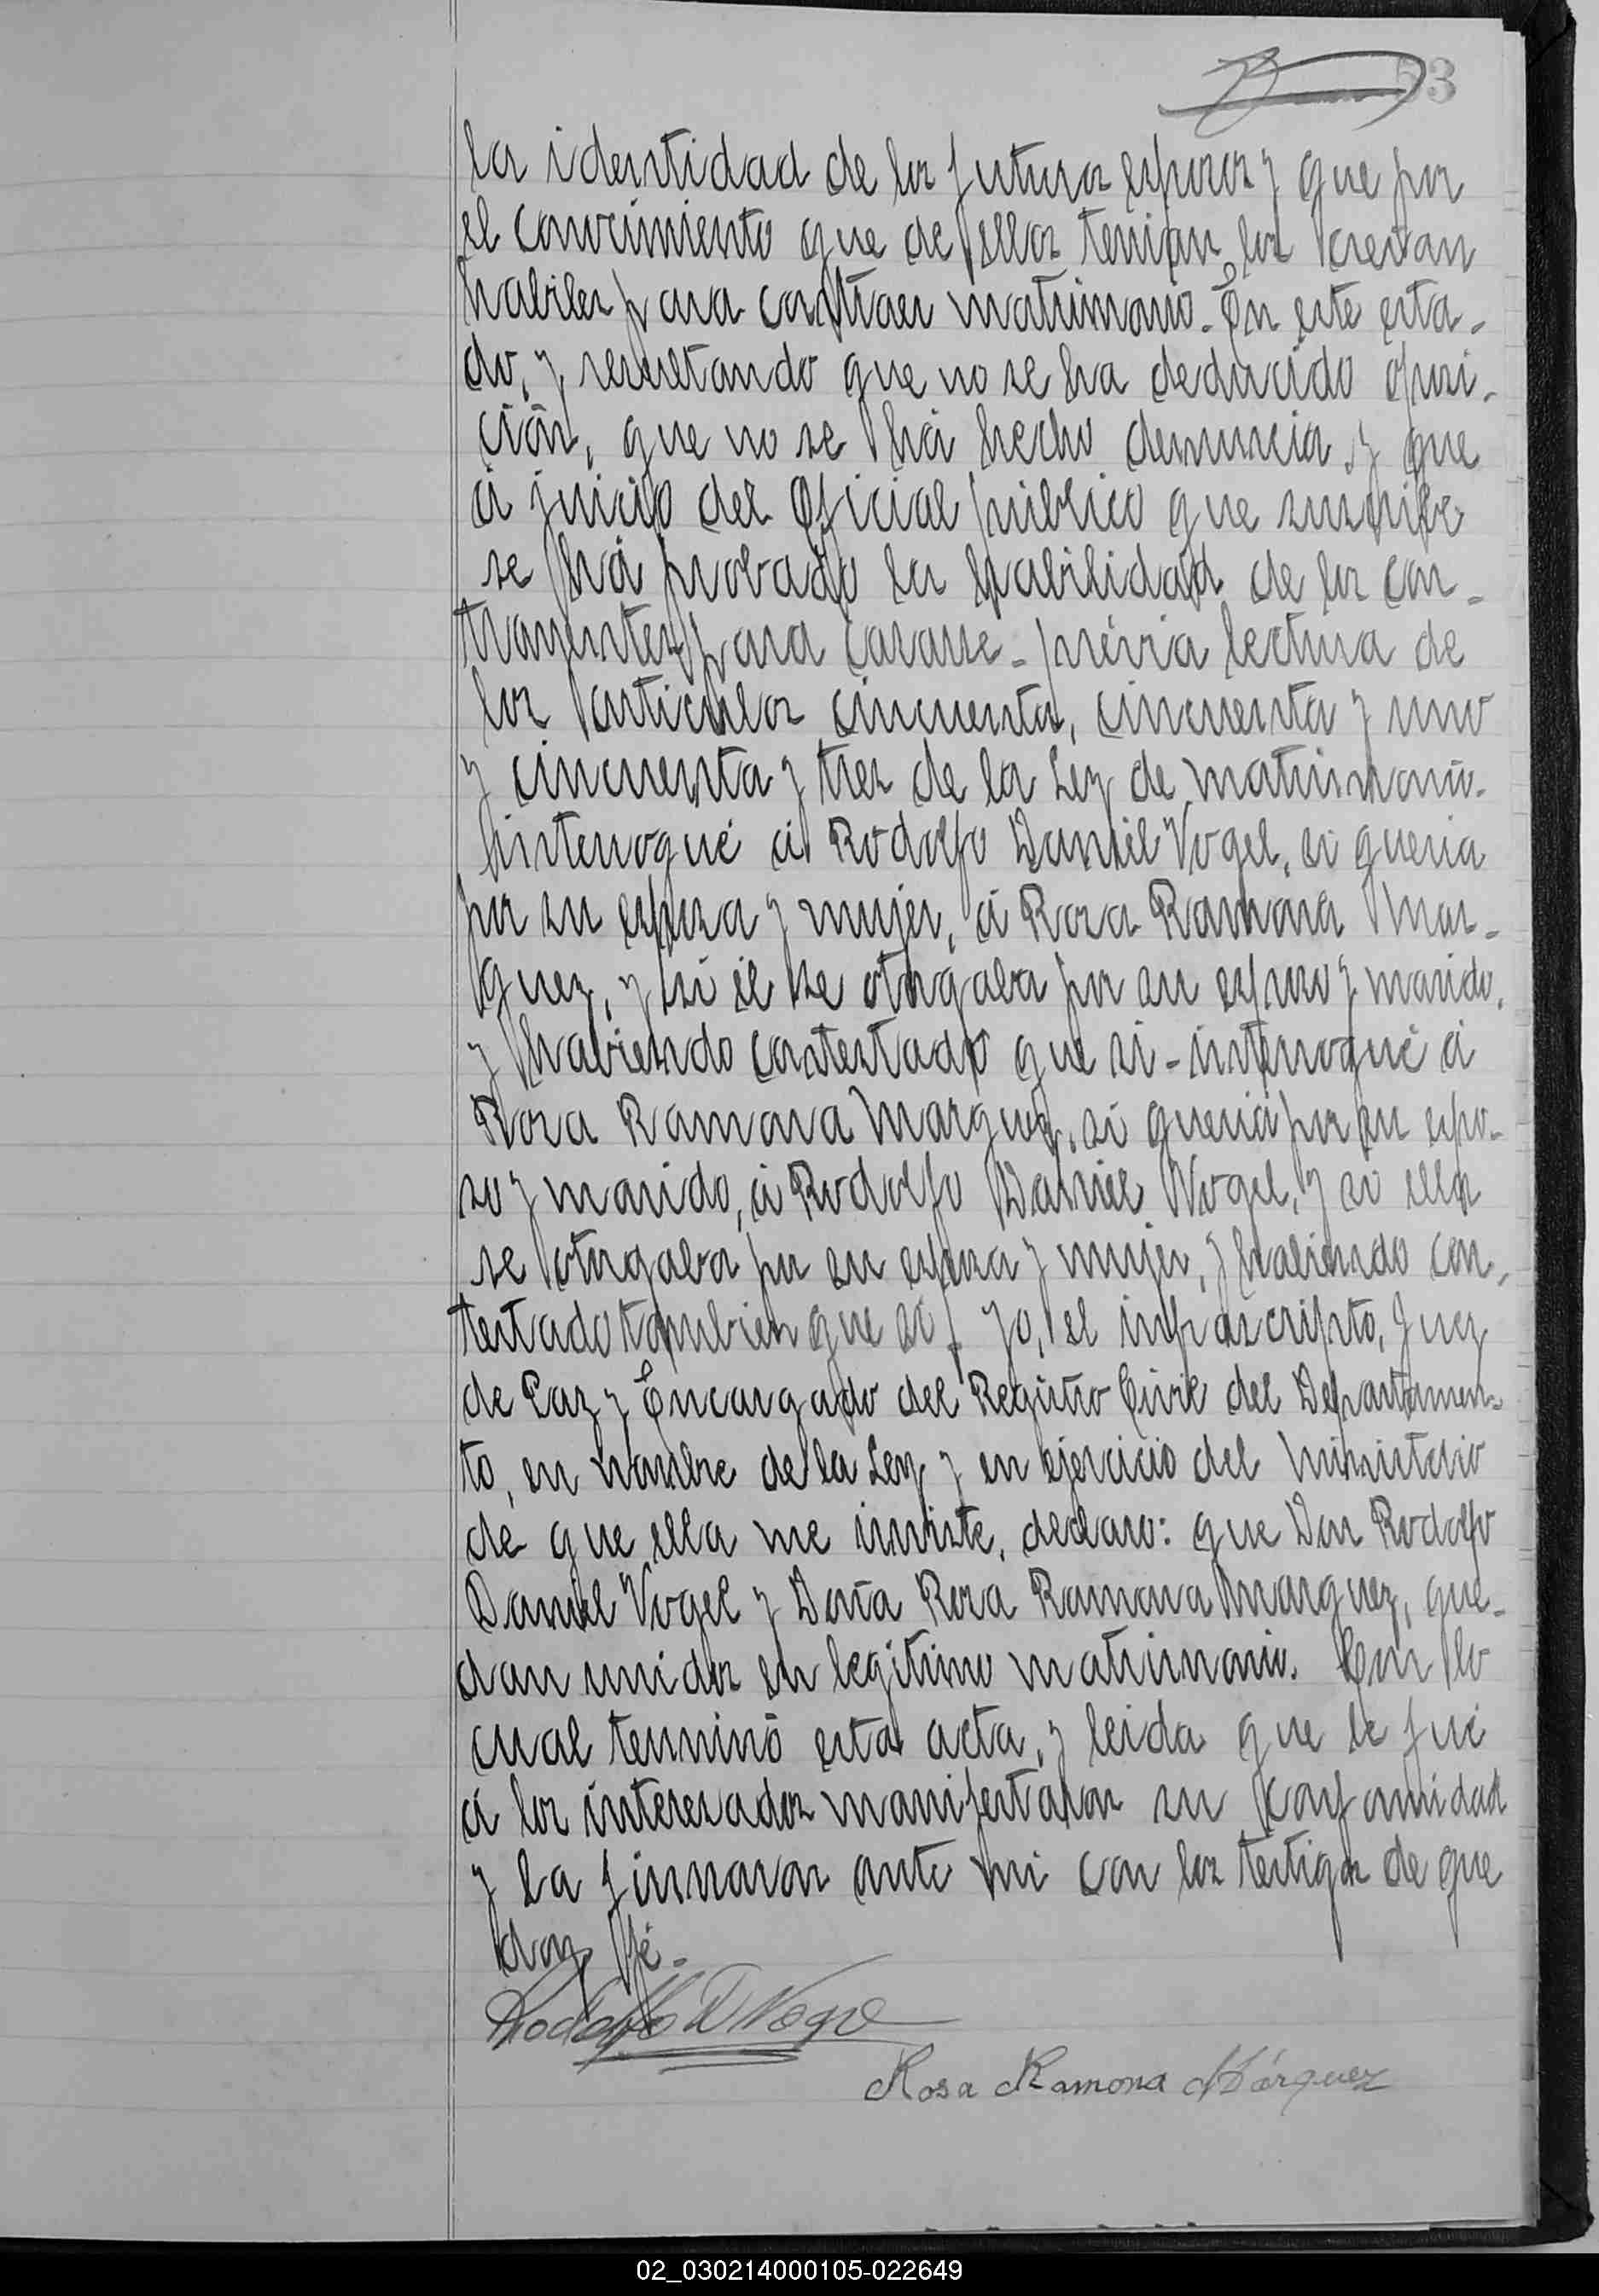 53
la identidad de los futuros esposos y que por
el conocimiento que de ellos tenian, los creian
habiles para contraer matrimonio. En este esta-
do, y resultando que no se ha deducido oposi-
ción, que no se há hecho denuncia y que
á juicio del Oficial público que suscribe
se há probado la habilidad de los con-
trayentes para casarse - prévia lectura de
los articulos cincuenta, cincuenta y uno
y cincuenta y tres de la Ley de matrimonio.
Interrogué á Rodolfo Daniel Vogel, si queria
por su esposa y mujer, á Rosa Ramona Mar-
quez, y si él se otorgaba por su esposo y marido,
y habiendo contestado que si - interrogué á
Rosa Ramona Marquez, si queria por su espo-
so y marido, á Rodolfo Daniel Vogel, y si ella
se otorgaba por su esposa y mujer, y habiendo con-
testado tambien que si - Yo, el infrascripto, Juez
de Paz y Encargado del Registro Civil del Departamen-
to, en nombre de la Ley y en ejercicio del ministerio
de que ella me inviste, declaro: que Don Rodolfo
Daniel Vogel y Doña Rosa Ramona Marquez, que-
dan unidos en legitimo matrimonio. Con lo
cual terminó esta acta, y leida que le fué
á los interesados manifestaron su conformidad
y la firmaron ante mi con los testigos de que
doy fé.
Rodolfo D Vogel
Rosa Ramona Márquez
02_030214000105-022649